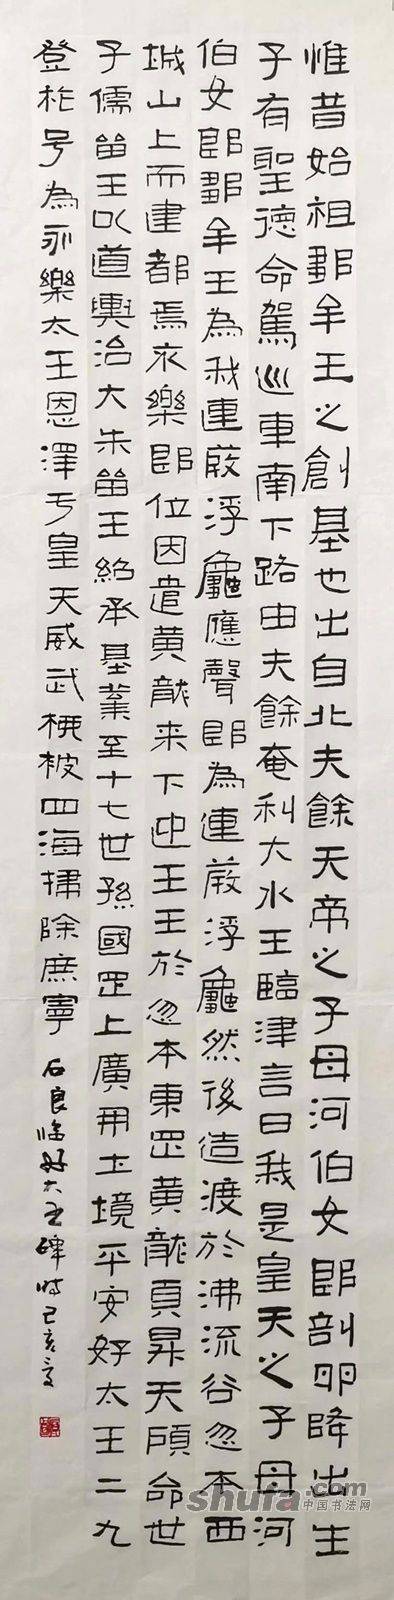 惟昔始祖鄒牟王之創基也出自北夫餘天帝之子母河伯女郎剖卵降出生
子有聖德命駕巡車南下路由夫餘奄利大水王臨津言曰我是皇天之子母河
伯女郎鄒牟王為我連葭浮龜應聲即為連葭浮龜然後造渡於沸流谷忽本西
城山上而建都焉永樂即位因遣黃龍来下迎王王於忽本東罡黃龍負昇天顧命世
子儒留王以道輿治大朱留王紹承基業至十七世孫國罡上廣開土境平安好太王二九
登祚号為永樂太王恩澤于皇天威武橫被四海掃除庶寧
石良臨好大王碑時己亥夏
shufa.com
中国书法网